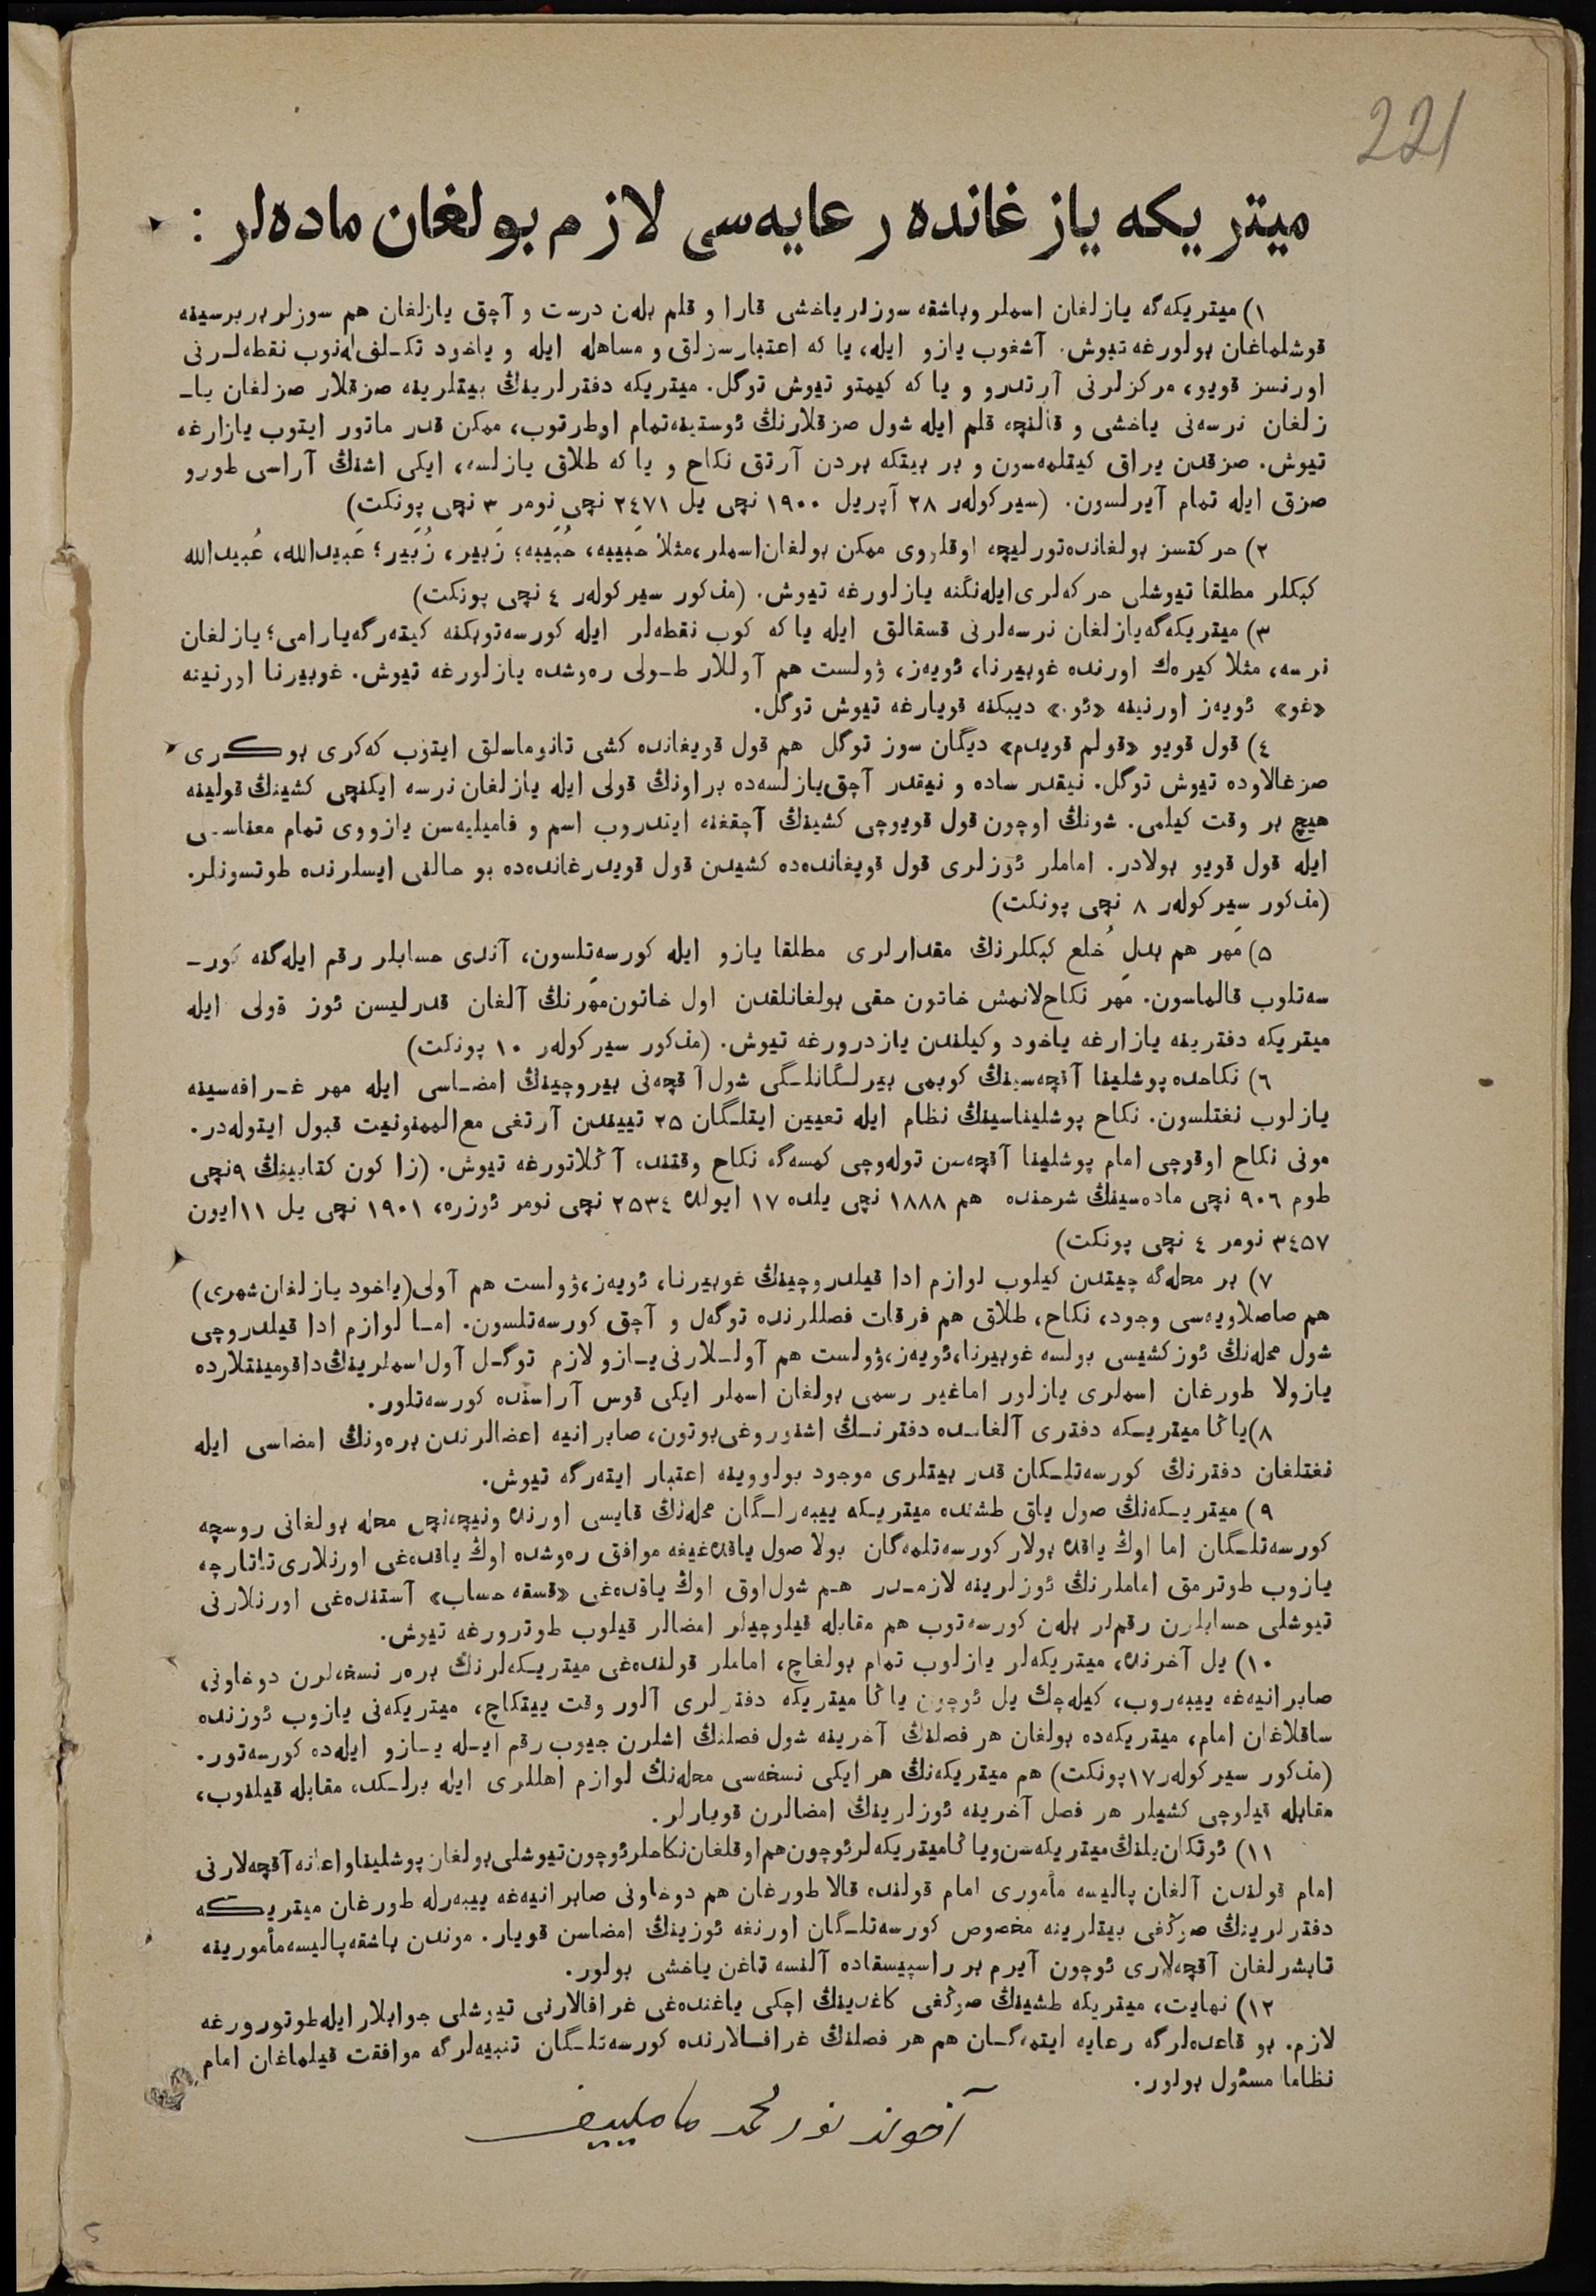 221
ميتريكه يازغانده رعايه‌سی لازم بولغان ماده‌لر :
١) ميتريكه‌گه يازلغان اسملر وباشقه سوزلر ياخشی قارا و قلم بله‌ن درست و آچق يازلغان هم سوزلر بربرسينه
قوشلماغان بولورغه تيوش. آشغوب يازو ايله، يا كه اعتبارسزلق و مساهله ايله و ياخود تكـلف‌له‌نوب نقطه‌لـرنی
اورنسز قويو، مركزلرنی آرتدرو و يا كه كيمتو تيوش توگل. ميتريكه دفترلرينڭ بيتلرينه صزقلار صزلغان يا‌ـ
زلغان نرسه‌نی ياخشی و قالنچه قلم ايله شول صزقلارنڭ ئوستينه‌تمام اوطرتوب، ممكن قدر ماتور ايتوب يازارغه
تيوش. صزقدن يراق كيتلمه‌سون و بر بيتكه بردن آرتق نكاح و يا كه طلاق يازلسه، ايكی اشنڭ آراسی طورو
صزق ايله تمام آيرلسون. (سيركولەر ٢٨ آپريل ١٩٠٠ نچی يل ٢٤٧١ نچی نومر ٣ نچی پونكت)
٢) حركتسز بولغانده‌تورليچه اوقلروی ممكن بولغان‌اسملر،مثلاً حَبيبه، حُبَيبه؛ زَبير، زُبَير؛ عَبيدالله، عُبيدالله
كبكلر مطلقا تيوشلی حركه‌لری‌ايله‌نگنه يازلورغه تيوش. (مذكور سيركولەر ٤ نچی پونكت)
٣) ميتريكه‌گه‌يازلغان نرسه‌لرنی قسقالق ايله يا كه كوب نقطه‌لر ايله كورسه‌توبكنه كيته‌رگه‌يارامی؛ يازلغان
نرسه، مثلا كيره‌ك اورنده غوبيرنا، ئويه‌ز، ۋولست هم آوللار طـولی ره‌وشده يازلورغه تيوش. غوبيرنا اورنينه
«غو» ئويه‌ز اورنينه «ئو.» ديبكنه قويارغه تيوش توگل.
٤) قول قويو «قولم قويدم» ديگان سوز توگل هم قول قويغانده كشی تانوماسلق ايتوب كه‌كری بوكـری
صزغالاوده تيوش توگل. نيقدر ساده و نيقدر آچق‌يازلسه‌ده براونڭ قولی ايله يازلغان نرسه ايكنچی كشينڭ قولينه
هيچ بر وقت كيلمی. شونڭ اوچون قول قويوچی كشينڭ آچقغنه ايتدروب اسم و فاميليه‌سن يازووی تمام معناسـی
ايله قول قويو بولادر. اماملر ئوزلری قول قويغانده‌ده كشيدن قول قويدرغانده‌ده بو حالنی ايسلرنده طوتسونلر.
(مذكور سيركولەر ٨ نچی پونكت)
٥) مَهر هم بدلِ خُلع كبكلرنڭ مقدارلری مطلقا يازو ايله كورسه‌تلسون، آندی حسابلر رقم ايله‌گنه كورـ
سه‌تلوب قالماسون. مَهر نكاح‌لانمش خاتون حقی بولغانلقدن اول خاتون‌مَهرنڭ آلغان قدرليسن ئوز قولی ايله
ميتريكه دفترينه يازارغه ياخود وكيلندن يازدرورغه تيوش. (مذكور سيركولەر ١٠ پونكت)
٦) نكاحده پوشلينا آقچه‌سينڭ كوبمی بيرلـگانلـگی شول آقچه‌نی بيروچينڭ امضـاسی ايله مهر غـرافه‌سينه
يازلوب نغتلسون. نكاح پوشليناسينڭ نظام ايله تعيين ايتلـگان ٢٥ تييندن آرتغی مع‌الممنونيت قبول ايتوله‌در.
مونی نكاح اوقوچی امام پوشلينا آقچه‌سن توله‌وچی كمسه‌گه نكاح وقتنده آڭلاتورغه تيوش. (زاكون كتابينڭ ٩نچی
طوم ٩٠٦ نچی ماده‌سينڭ شرحنده هم ١٨٨٨ نچی يلده ١٧ ايولده ٢٥٣٤ نچی نومر ئوزره، ١٩٠١ نچی يل ١١ايون
٣٤٥٧ نومر ٤ نچی پونكت)
٧) بر محله‌گه چيتدن كيلوب لوازم ادا قيلدروچينڭ غوبيرنا، ئويه‌ز،ۋولست هم آولی(ياخود يازلغان‌شهری)
هم صاصلاويه‌سی وجود، نكاح، طلاق هم فرقات فصللرنده توگه‌ل و آچق كورسه‌تلسون. امـا لوازم ادا قيلدروچی
شول محله‌نڭ ئوزكشيسی بولسه غوبيرنا،ئويه‌ز،ۋولست هم آولـلارنی‌يـازو لازم توگـل آول‌اسملرينڭ‌داقومينتلارده
يازولا طورغان اسملری يازلور اماغير رسمی بولغان اسملر ايكی قوس آراسنده كورسه‌تلور.
٨)ياڭا ميتريـكه دفتری آلغانـده دفترنـڭ اشنوروغی‌بوتون، صابرانيه اعضالرندن بره‌ونڭ امضاسی ايله
نغتلغان دفترنڭ كورسه‌تلـكان قدر بيتلری موجود بولووينه اعتبار ايته‌رگه تيوش.
٩) ميتريـكه‌نڭ صول ياق طشنده ميتريـكه ييبه‌رلـگان محله‌نڭ قايسی اورنده ونيچه‌نچی محله بولغانی روسچه
كورسه‌تلـگان اما اوڭ ياقده بولار كورسه‌تلمه‌گان بولا صول ياقده‌غيغه موافق ره‌وشده اوڭ ياقده‌غی اورنلاری‌تاتارچه
يازوب طوترمق اماملرنڭ ئوزلرينه لازمـدر هـم شول‌اوق اوڭ ياقده‌غی «قسقه حساب» آستنده‌غی اورنلارنی
تيوشلی حسابلرن رقم‌لر بله‌ن كورسه‌توب هم مقابله قيلوچيلر امضالر قيلوب طوترورغه تيوش.
١٠) يل آخرنده، ميتريكه‌لر يازلوب تمام بولغاچ، اماملر قولنده‌غی ميتريـكه‌لرنڭ بره‌ر نسخه‌لرن دوخاونی
صابرانيه‌غه ييبه‌روب، كيله‌چك يل ئوچون ياڭا ميتريكه دفترلری آلور وقت ييتكاچ، ميتريكه‌نی يازوب ئوزنده
ساقلاغان امام، ميتريكه‌ده بولغان هر فصلنڭ آخرينه شول فصلنڭ اشلرن جيوب رقم ايـله يـازو ايله‌ده كورسه‌تور.
(مذكور سيركولەر١٧پونكت) هم ميتريكه‌نڭ هر ايكی نسخه‌سی محله‌نڭ لوازم اهللری ايله برلـكده مقابله قيلنوب،
مقابله قيلوچی كشيلر هر فصل آخرينه ئوزلرينڭ امضالرن قويارلر.
١١) ئوتكان‌يلنڭ‌ميتريكه‌سن‌وياڭاميتريكه‌لرئوچون‌هم‌اوقلغان‌نكاحلرئوچون‌تيوشلی‌بولغان‌پوشليناواعانه‌آقچه‌لارنی
امام قولندن آلغان پاليسه مأموری امام قولنده قالا طورغان هم دوخاونی صابرانيه‌غه ييبه‌رله طورغان ميتريـكه
دفترلرينڭ صوڭغی بيتلرينه مخصوص كورسه‌تلـگان اورنغه ئوزينڭ امضاسن قويار. موندن باشقه‌پاليسه‌مأمورينه
تابشرلغان آقچه‌لاری ئوچون آيرم بر راسپيسقاده آلنسه تاغن ياخشی بولور.
١٢) نهايت، ميتريكه طشينڭ صوڭغی كاغدينڭ اچكی ياغنده‌غی غرافالارنی تيوشلی جوابلار ايله‌طوتورورغه
لازم. بو قاعده‌لرگه رعايه ايتمه‌گـان هم هر فصلنڭ غرافـالارنده كورسه‌تلـگان تنبيه‌لرگه موافقت قيلماغان امام
نظاما مسئول بولور.
آخوند نورمحمد ماملييف